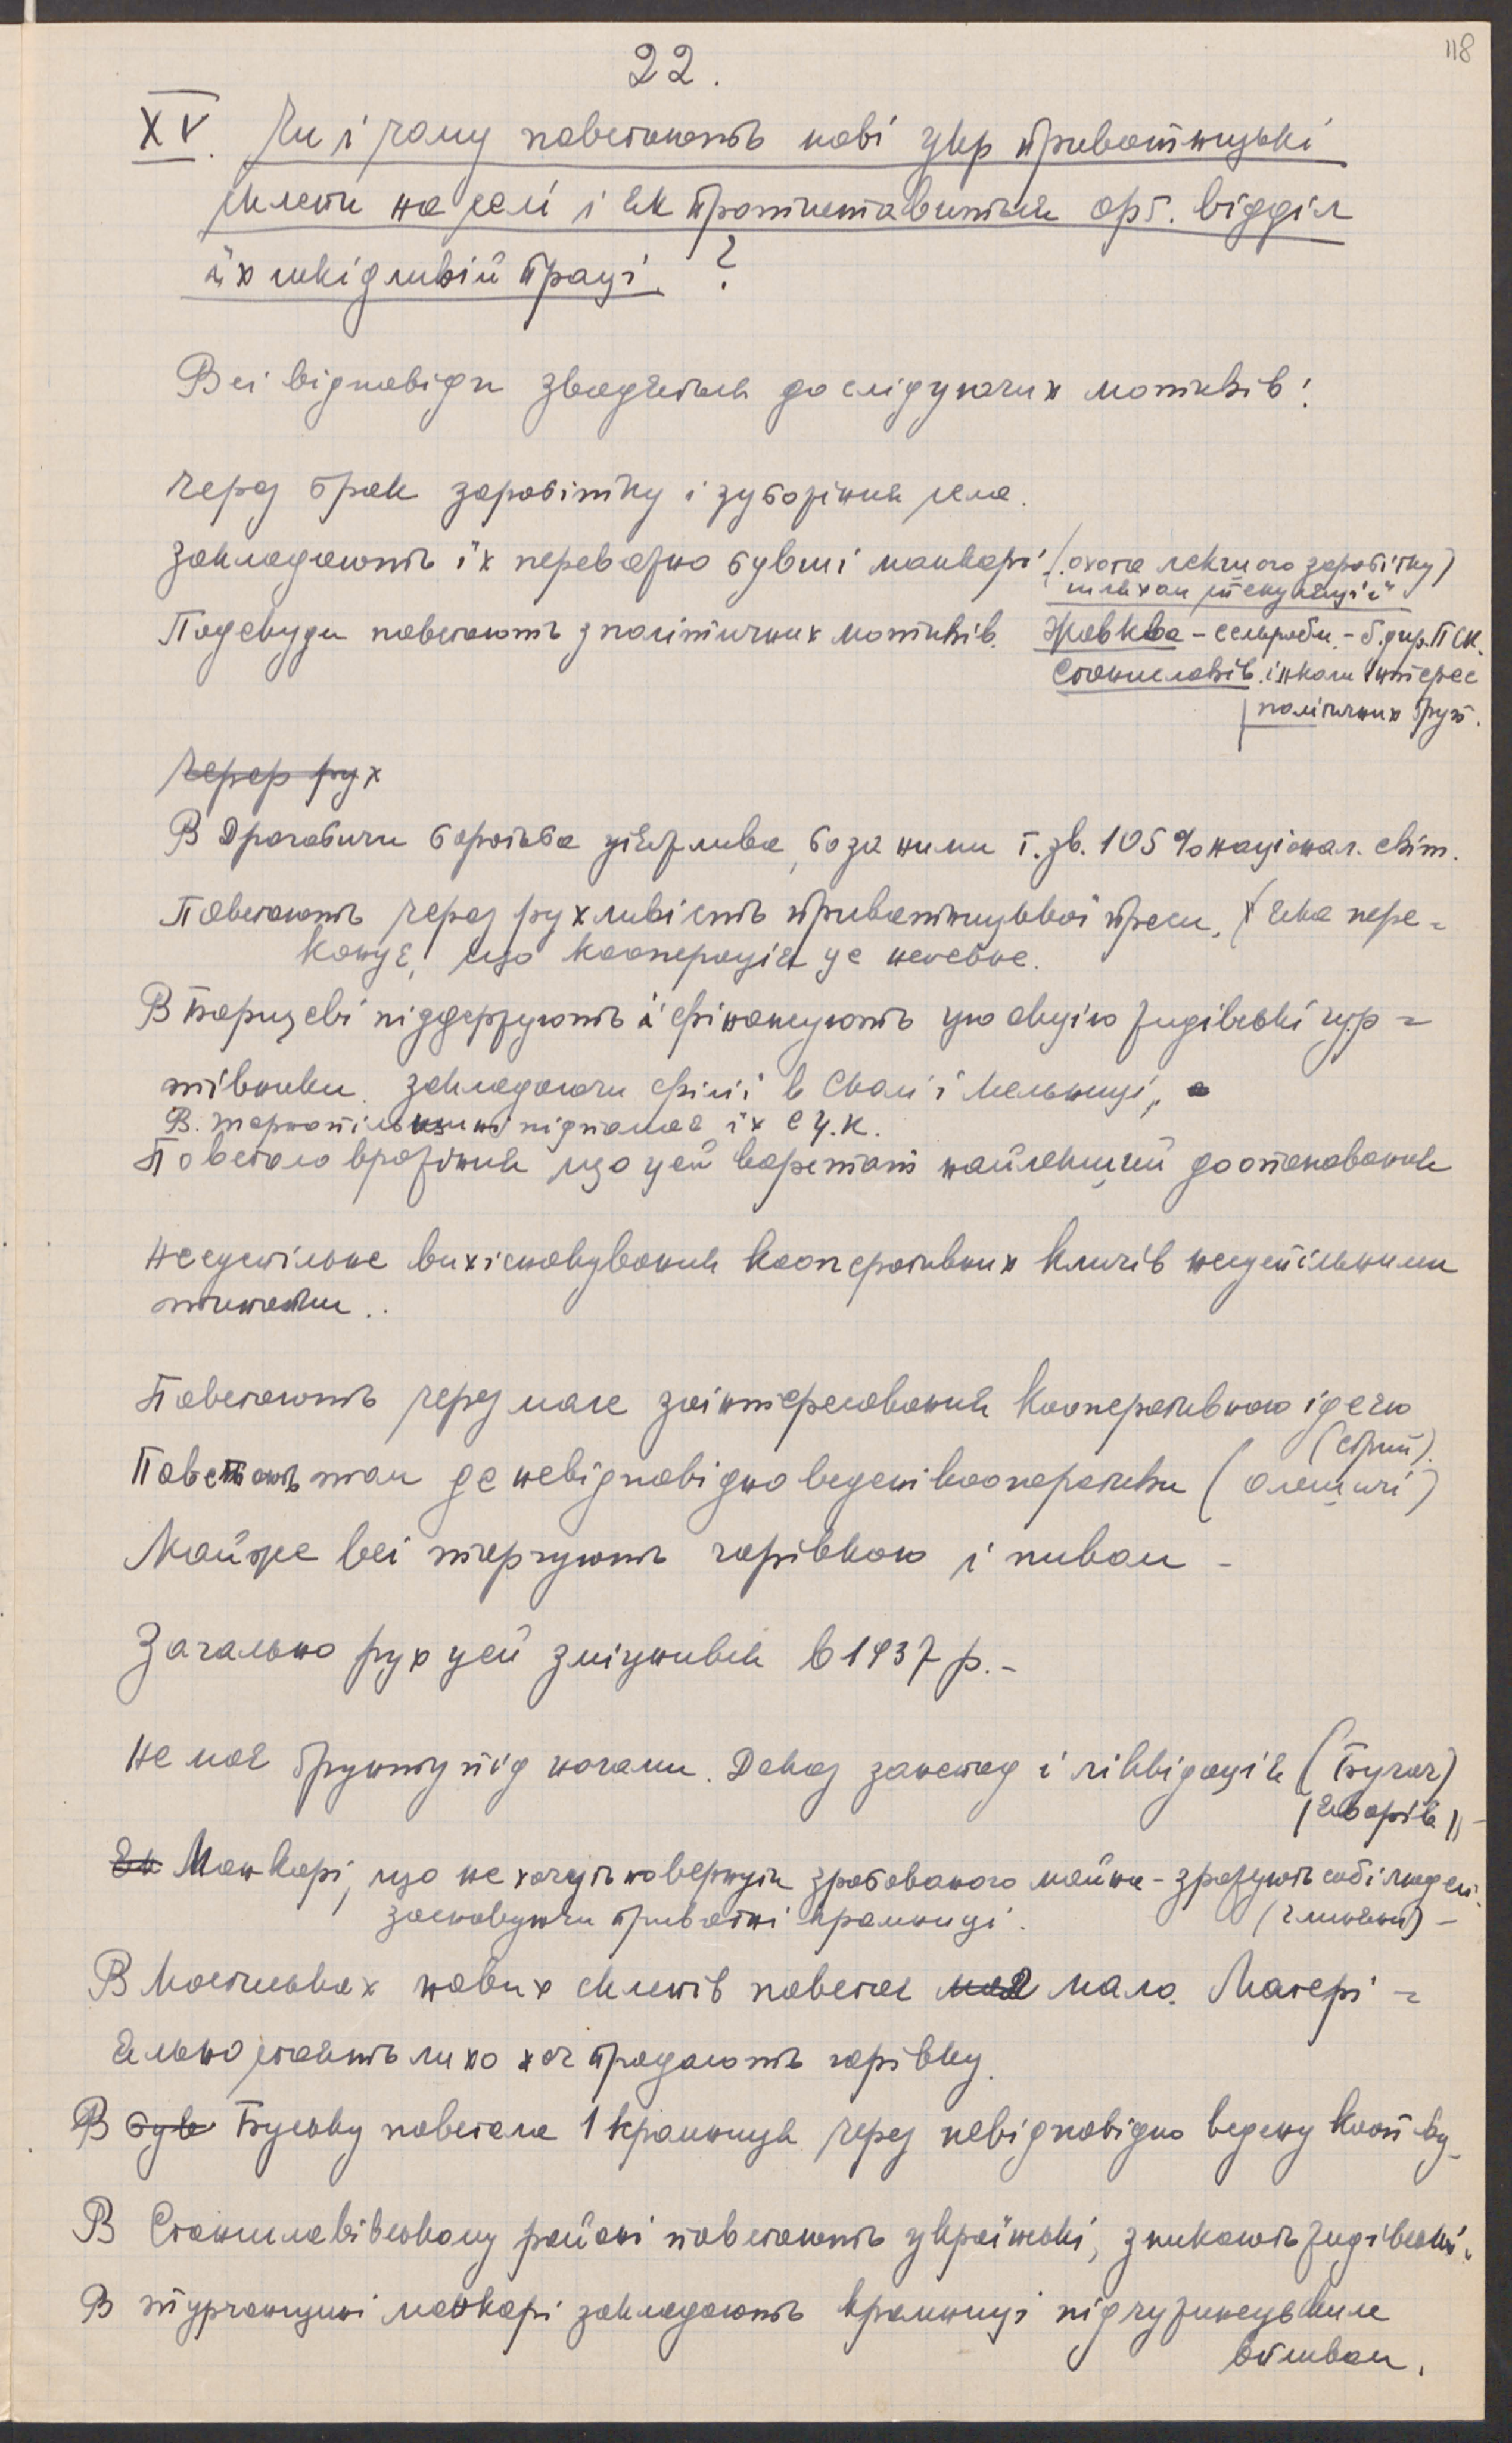 118
22.
XV. Чи і чому повстають нові укр приватницькі
склепи на селі і як протиставиться орг. відділ
їх шкідливій праці. ?
Всі відповіди зводяться до слідуючих мотивів:
Через брак заробітку і зубожіння села.
Закладають їх переважно бувші манкарі (охота легкого заробітку)
шляхом спекуляції
Подекуди повстають з політичних мотивів. Жовква – сельроби. – б. дир. ПСК.
Станиславів. інколи інтерес
політичних груп.
Через рух
В Дрогобичи боротьба уїдлива, бо за ними т. зв. 105 % націонал. світ.
Повстають через рухливість приватницької преси, яка пере-
конує, що кооперація це нечевне.
В Борщеві піддержують й фінансують цю акцію жидівські гур-
тівники. закладаючи філії в Скалі і Мельниці,
В. тернопільщині підпомагає їх С.У.К.
Повстало вражіння що цей варстат найлекший до опановання
Несуспільне вихісновування кооперативних кличів несуспільними
типами..
Повстають через мале заінтересовання кооперативною ідеєю
(Стрий).
Повстають там де невідповідно ведені кооперативи (Олешичі)
Майже всі торгують горівкою і пивом –
Загально рух цей зміцнився в 1937 р. –
Не має ґрунту під ногами. Доказ занепад і ліквідація (Бучач)
(Яворів) –
Як Манкарі, що не хочуть повернути зрабованого майна – зражують собі людей.
засновуючи приватні крамниці. (Глиняни) –
В Мостиськах нових склепів повстає має мало. Матері-
яльно стоять лихо хоч продають горівку.
В був Буську повстала 1 крамниця через невідповідно ведену кооп-ву
В Станиславівському районі повстають українські, зникають жидівські.
В турчанщині манкарі закладають крамниці під чужинецьким
впливом.